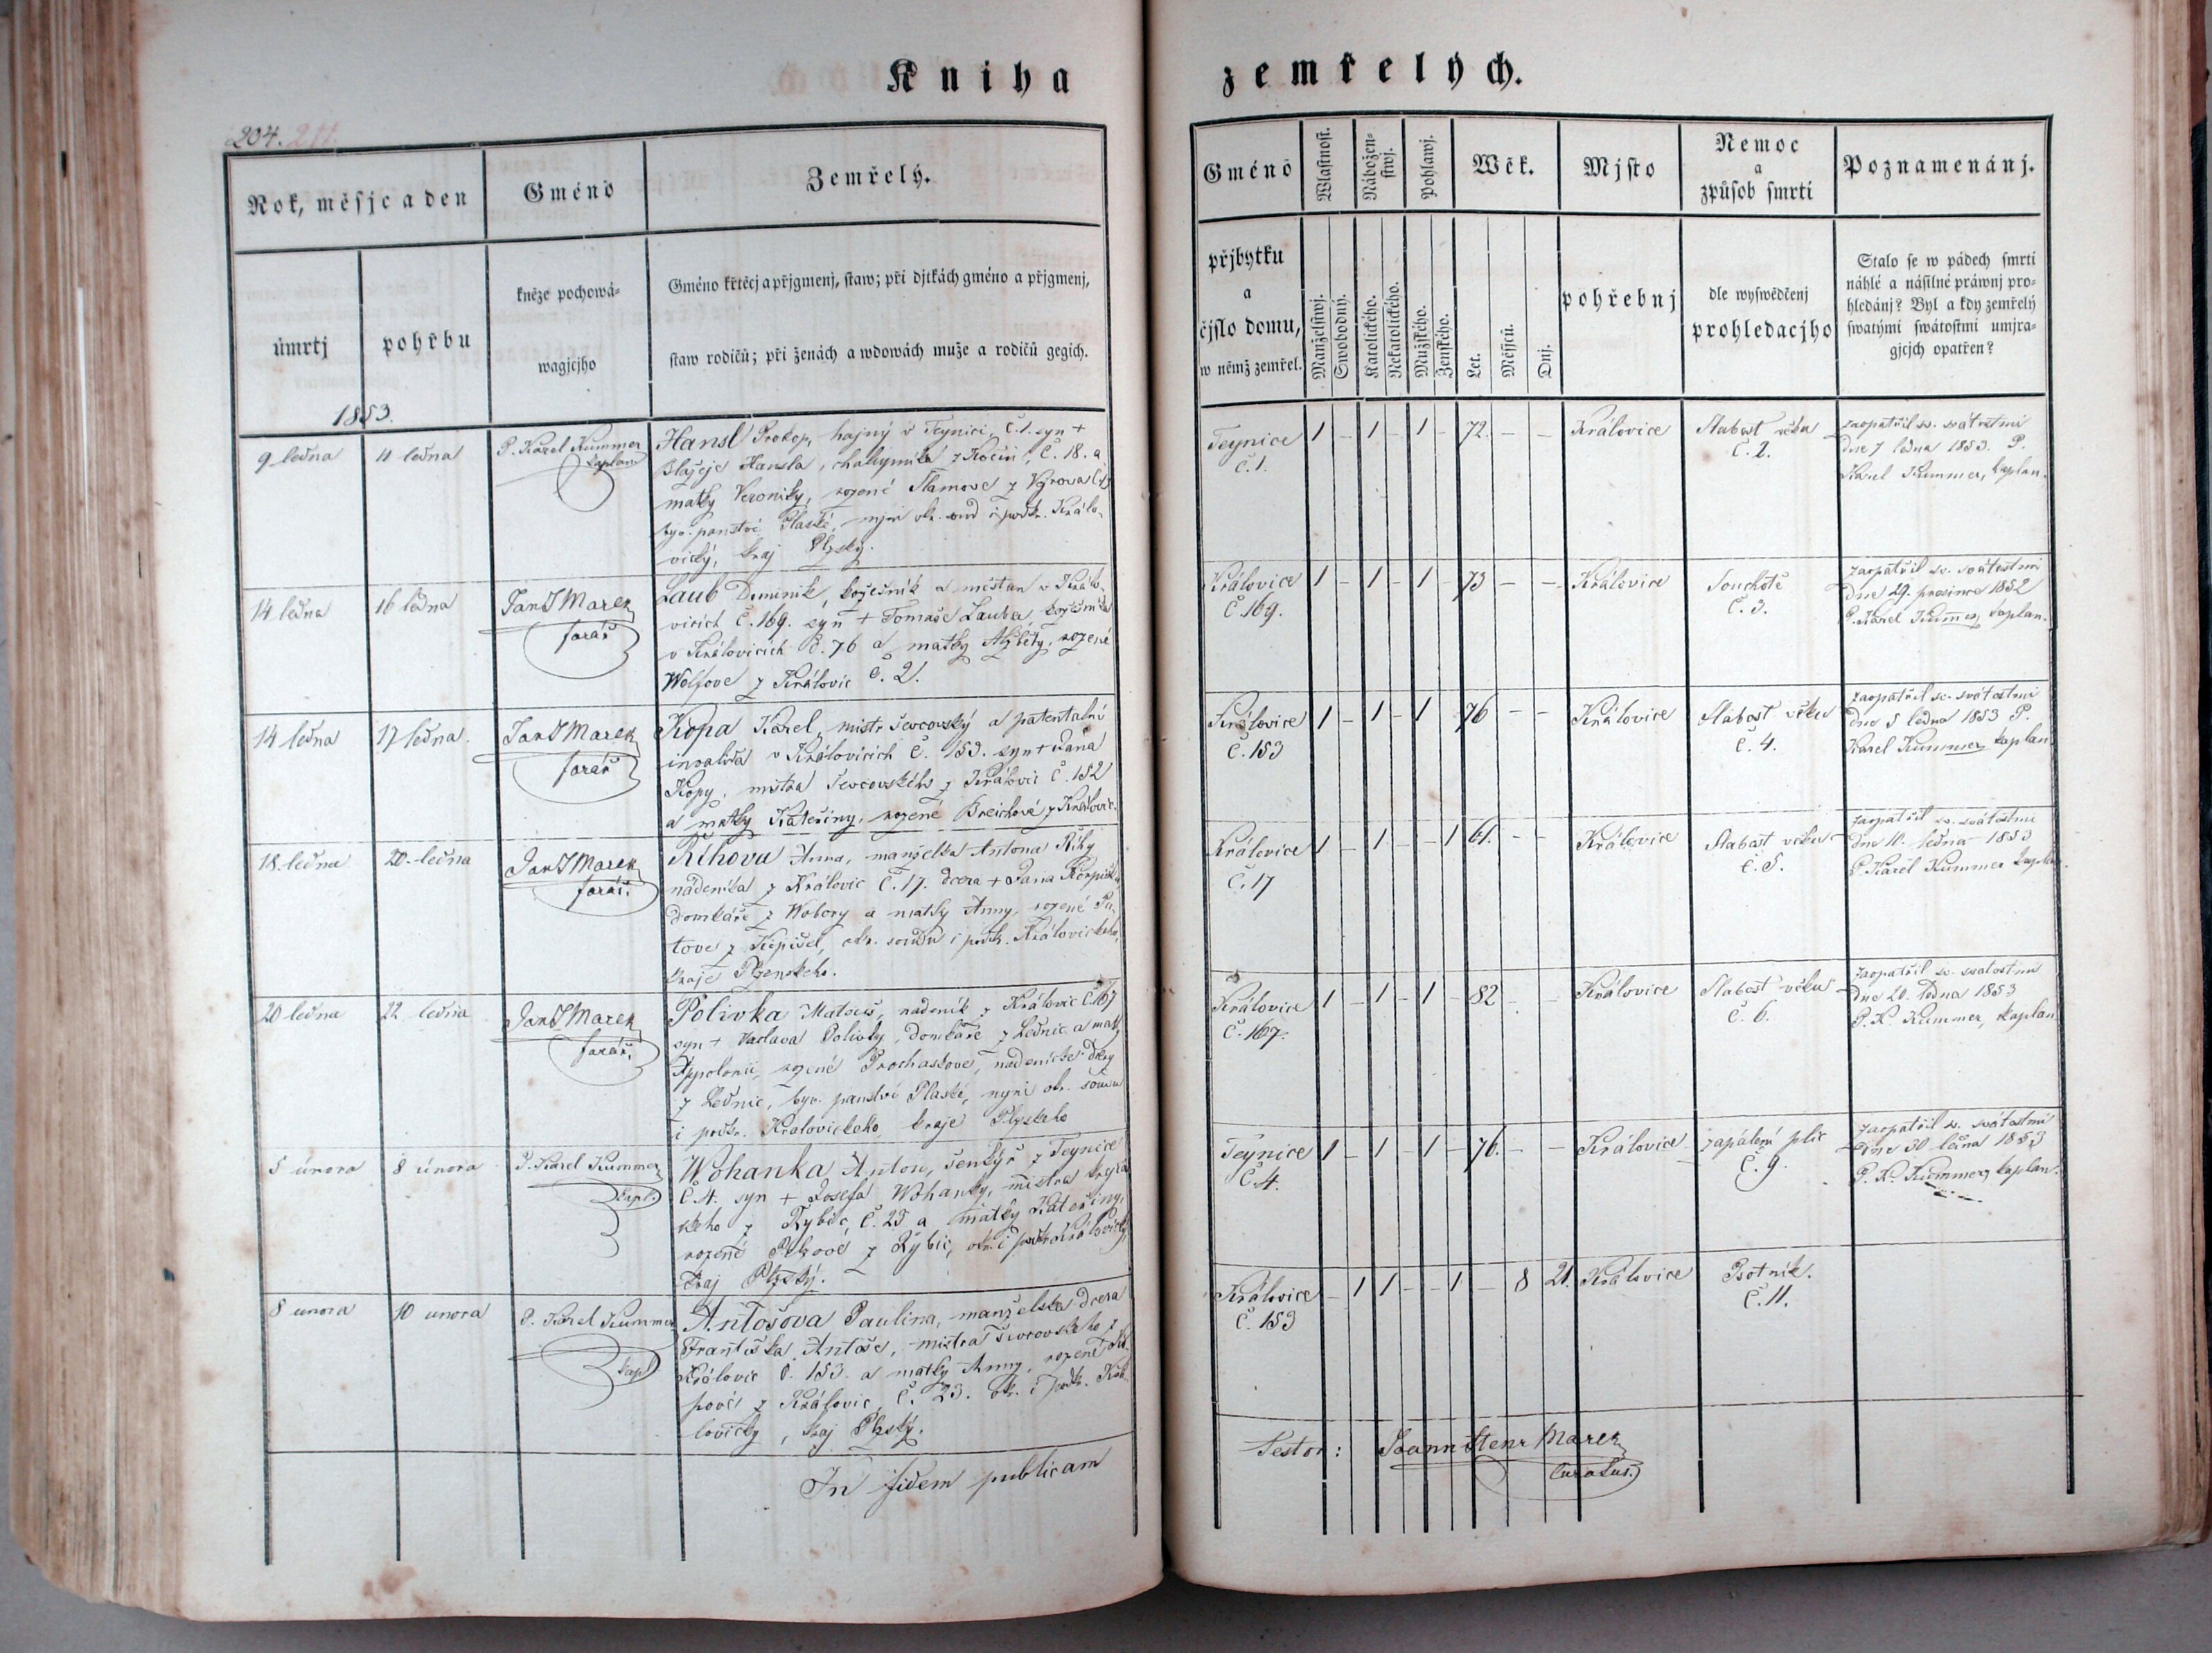 Kniha
zemřelých.
204. 211.
Rok, měsjc a den
Gméno
Zemřelý.
úmrtj
pohřbu
kněze pochowá-
wagjcjho
Gméno křtěcj a přjgmenj, staw; při djtkách gméno a přjgmenj,
staw rodičů; při ženách a wdowách muže a rodičů gegich.
1853.
9 ledna
11 ledna
P. Karel Kummer
kaplan
Hansl Prokop, hajný v Teynici, Č. 1. syn +
Blažeje Hansla, chalupnika z Kočin, Č. 18. a
matky Veroniky, rozené Slamové z Výrova
byv. panství Plaské, nyní okr. soud i podkr. Králo-
vický, kraj Plzský.
14 ledna
16 ledna
Jan J Marek
farář
Laub Dominik, kožešník a měštan v Králo-
vicích č. 169. syn + Tomaše Lauba, kožešníka
v Královicích Č. 76 a matky Alžběty, rozené
Wolfove z Královic č. 21.
14 ledna
17 ledna.
Jan J Marek
farář
Kopa Karel, mistr ševcovský a patentalní
invalida v Královicích č. 153. syn + Jana
Kopy, mistra ševcovského z Královic č. 152
a matky Kateřiny, rozené Breichové z Královic.
18. ledna
20. ledna
Jan J Marek
farář.
Říhova Anna, manželka Antona Říhy
nádeníka z Královic č. 17. dcera + Jana
domkáře z Wobory a matky Anny, rozené
tove z Kopidel, okr. soudu i podkr. Královického,
kraje Plzenskeho.
20 ledna
22. ledna
Jan J Marek
farář.
Polivka Matouš, nadeník z Královic č. 167
syn + Vaclava Polivky, domkáře z Lednic a matky
Appolonie, rozené Prochaskové, nádenické dcery
z Lednic, byv. panství Plaské, nyní okr. soudu
i podkr. Kralovickeho, kraje Plzskeho
5 února
8 února
P. Karel Kummer
kapl.
Wohanka Anton, šenkýř z Teynice
č. 4. syn + Josefa Wohanky, mistra krejčo-
vskeho z Rybic, č. 25 a matky Kateřiny,
rozené z Rybic, okr. i podkr. Královický,
kraj Plzský.
8 unora
10 unora
P. Karel Kummer
kapl
Antošova Paulina, manželska dcera
Františka Antoše, mistra ševcovskeho z
Královic č. 153. a matky Anny, rozené
pové z Královic, č. 23. okr. i podkr. Krá-
lovický, kraj Plzský.
In fidem publicam
Gméno
Wlastnost.
Nábožen-
stwj.
Pohlawj.
Wěk.
Mjsto
Nemoc
a
způsob smrti
Poznamenánj.
přjbytku
a
čjslo domu,
w němž zemřel.
Manželstwj.
Swobodný.
Katolického.
Nekatolického.
Mužského.
Ženského.
Let.
Měsjců.
Dnj.
pohřebnj
dle wyswědčenj
prohledacjho
Stalo se w pádech smrti
náhlé a násilné práwnj pro-
hledánj? Byl a kdy zemřelý
swatými swátostmi umjra-
gjcjch opatřen?
Teynice 1 – 1 – 1 – 72. – – Královice Slabost věku zaopatřil sv. svátostmi
č. 1. č. 2. dne 7 ledna 1853. P.
Karel Kummer, kaplan.
Královice 1 – 1 – 1 – 73 – – Královice Souchotě zaopatřil sv. svátostmi
č. 169. č. 3. dne 29. prosince 1852
P. Karel Kummer, kaplan.
Královice 1 – 1 – 1 76 – – Královice Slabost věku zaopatřil sv. svátostmi
č. 153 č. 4. dne 5 ledna 1853 P.
Karel Kummer kaplan
Královice 1 – 1 – – 1 61. – – Královice Slabost věku zaopatřil sv. svátostmi
č. 17 č. 5. dne 11. ledna 1853
P. Karel Kummer kaplan.
Královice 1 – 1 – 1 – 82 – – Královice Slabost věku zaopatřil sv. svatostmi
č. 167. č. 6. dne 20. ledna 1853
P. K. Kummer, kaplan
Teynice 1 – 1 – 1 – 76. – – Královice zapálení plic zaopatřil sv. svátostmi
č. 4. č. 9. dne 30 ledna 1853
P. K. Kummer, kaplan.
Královice – 1 1 – – 1 – 8 21. Královice Psotník.
č. 153 č. 11.
Testor: Joann Nenr Marek
Curatus.